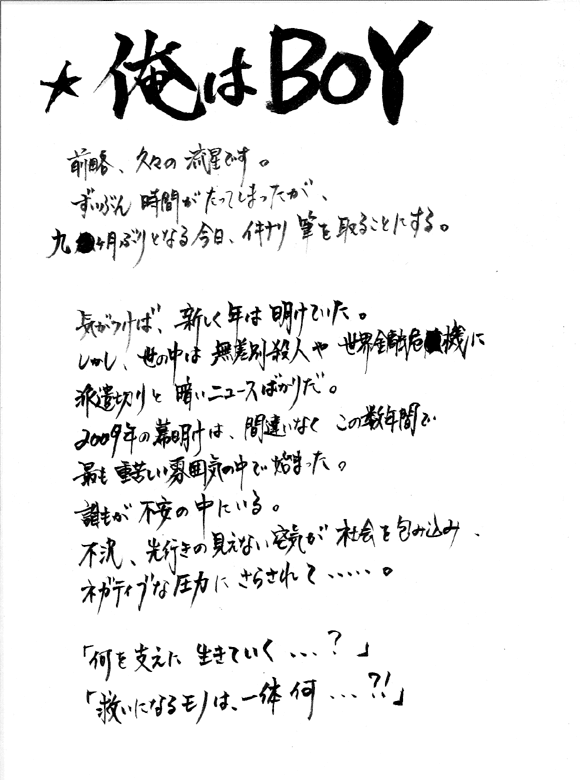 ★俺はBOY
前略、久々の流星です。
ずいぶん時間がたってしまったが、
九ヶ月ぶりとなる今日、イキナリ筆を取ることにする。
気がつけば、新しく年は明けていた。
しかし、世の中は無差別殺人や世界金融危機に
派遣切りと暗いニュースばかりだ。
2009年の幕明けは、間違いなくこの数年間で
最も重苦しい雰囲気の中で始まった。
誰もが不安の中にいる。
不況、先行きの見えない空気が社会を包み込み、
ネガティブな圧力にさらされて・・・・・。
「何を支えに生きていく・・・?」
「救いになるモノは、一体何・・・?!」